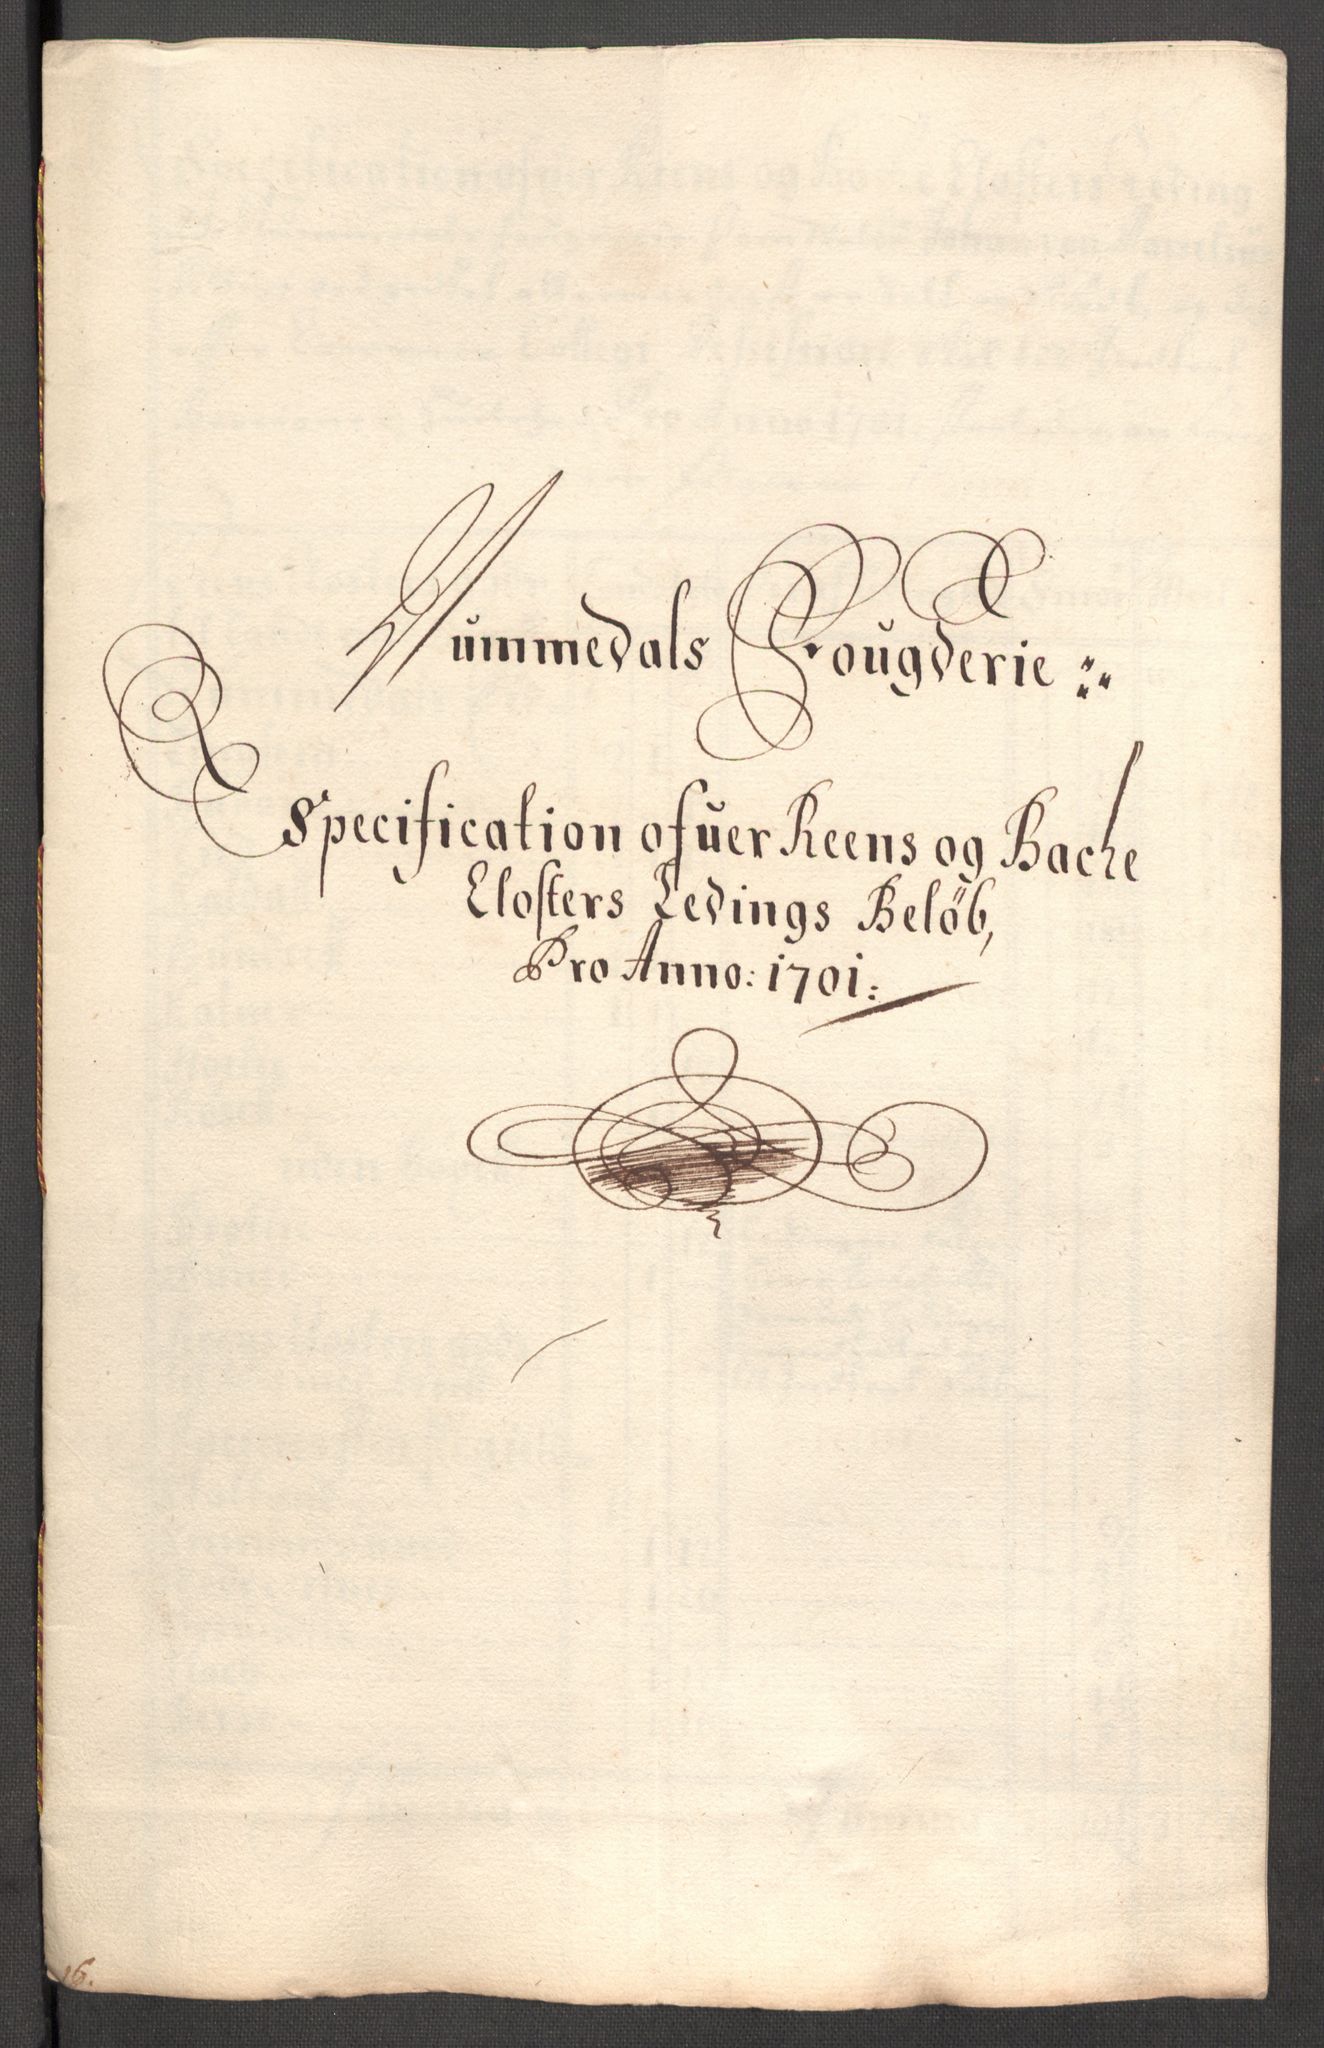 Nummedals Fougderie
Specification ofuer Reens og Bache
Closters Leding̃s Beløb,
Pro Anno: 1701:
16.